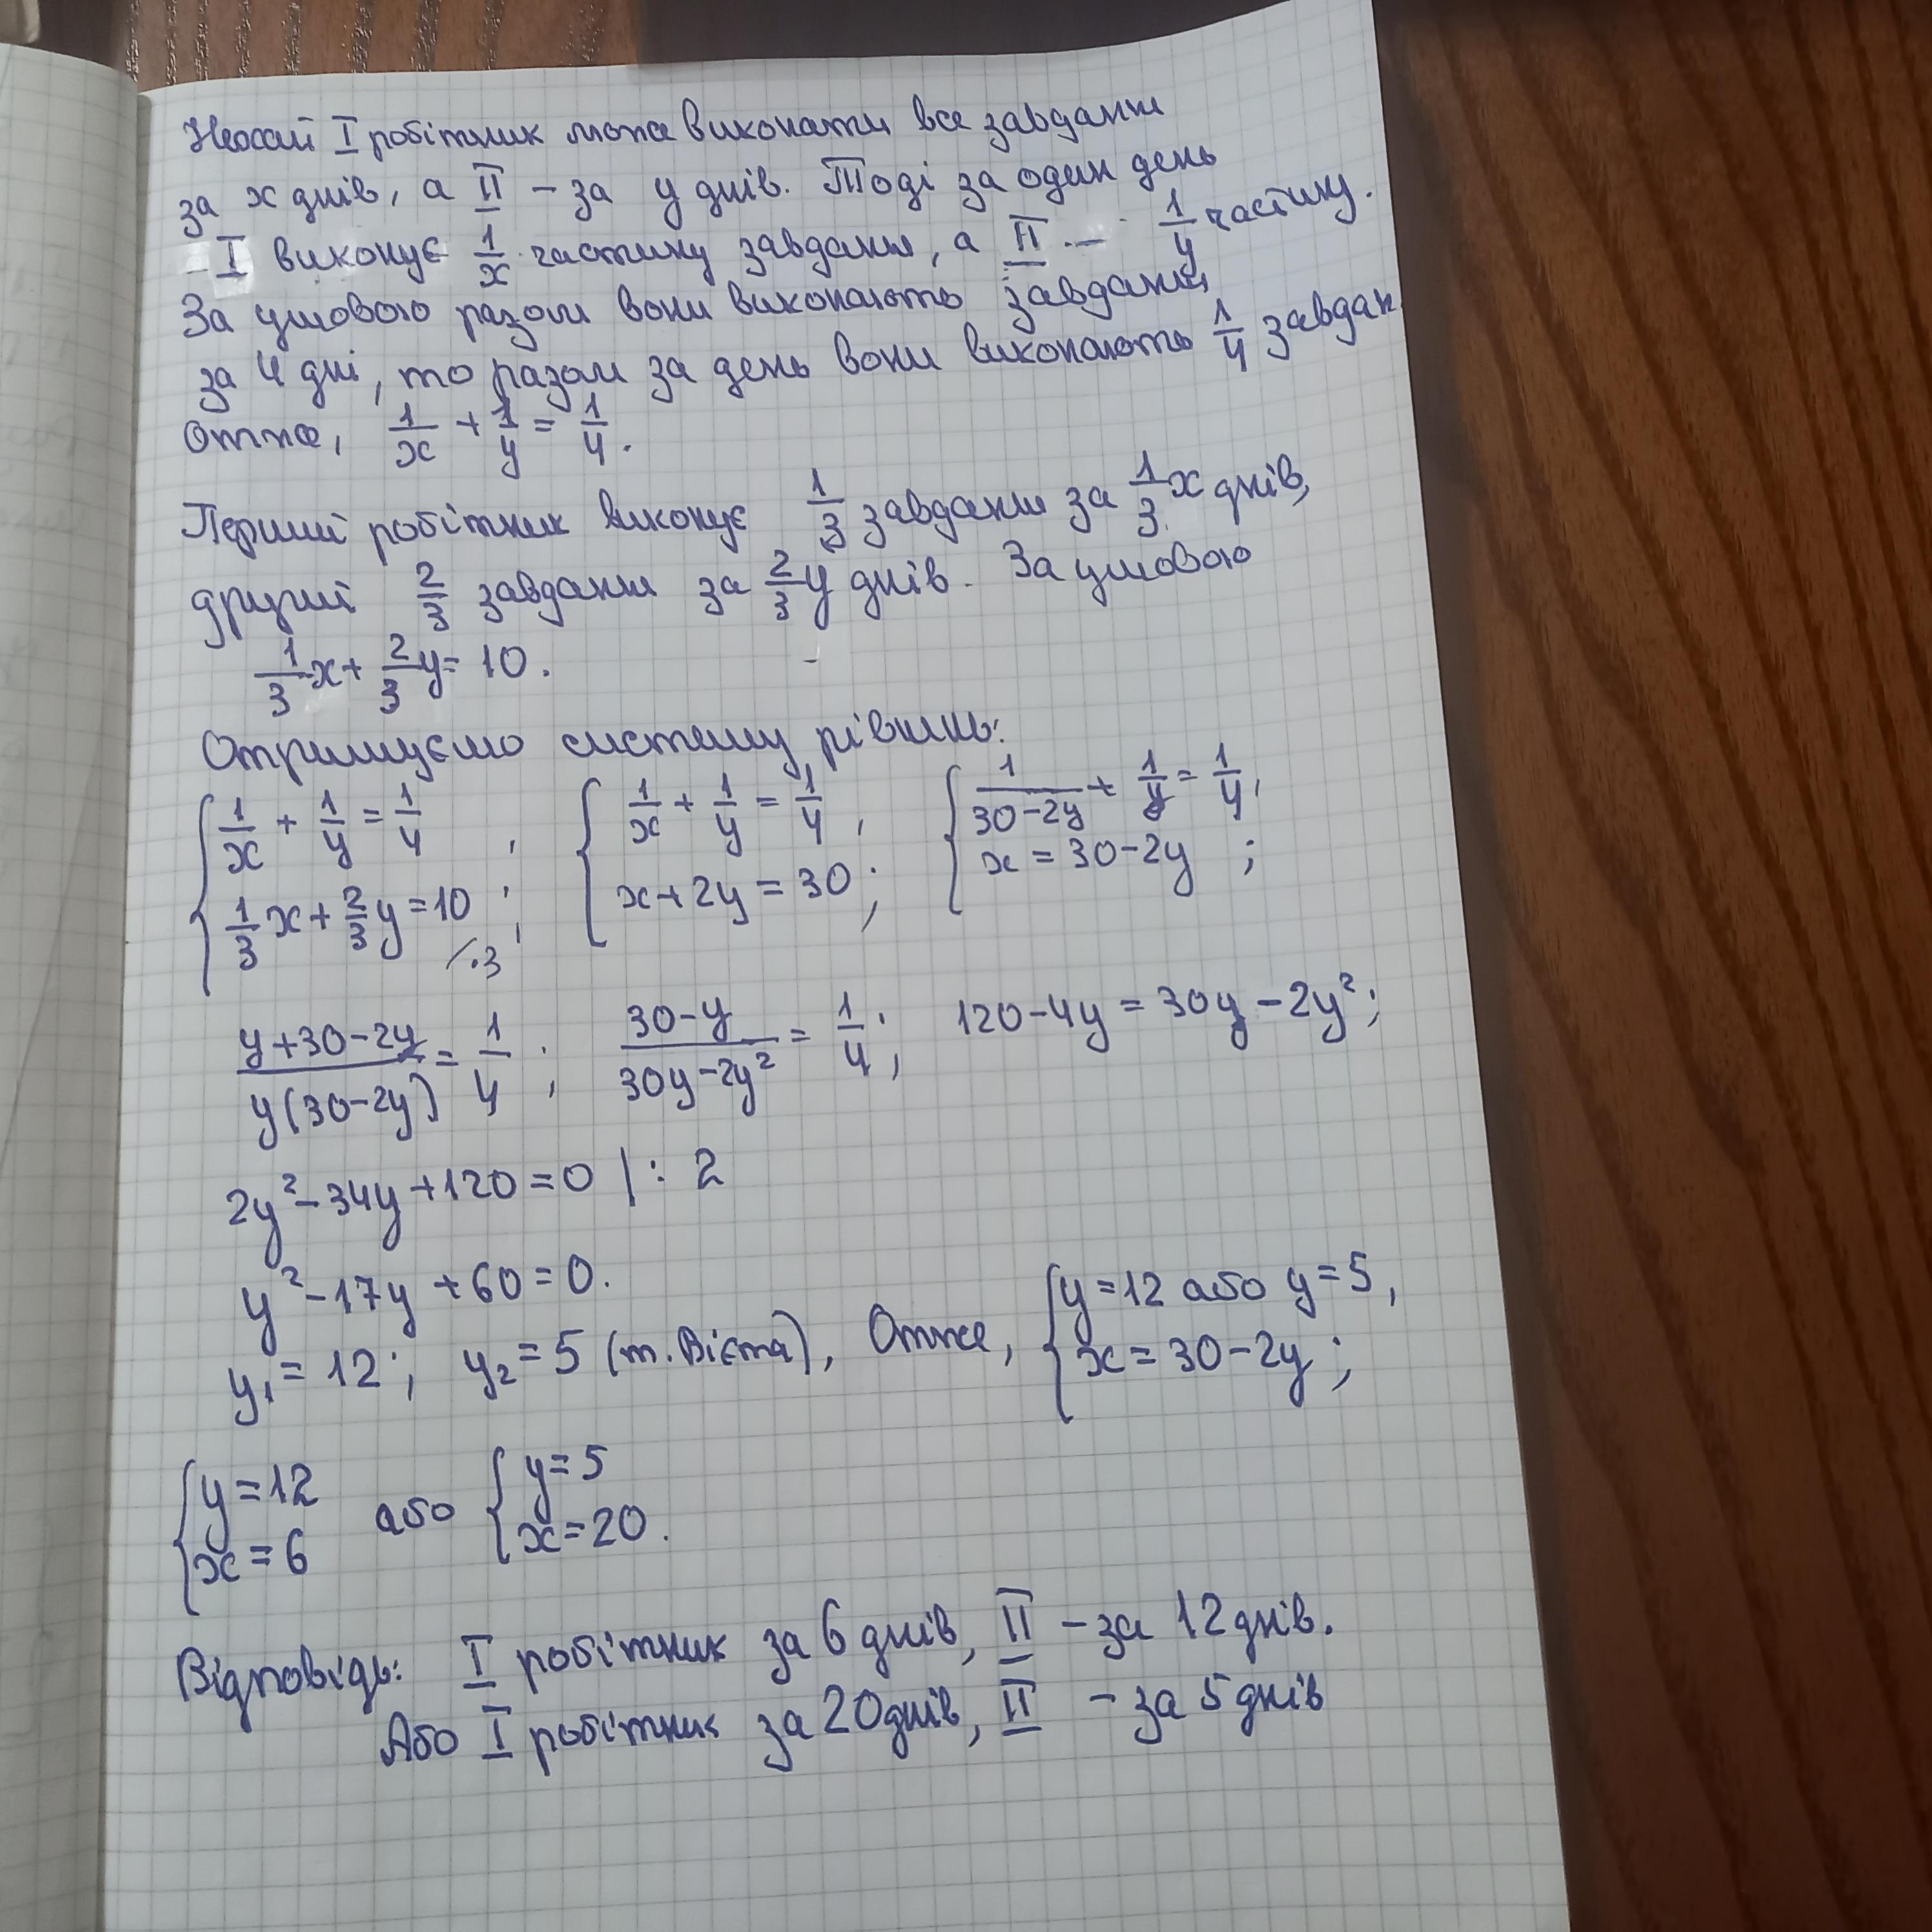 Нехай I робітник може виконати все завдання
за x днів, а II – за y днів. Тоді за один день
- I виконує 1/x частину завдання, а II – 1/y частину.
За умовою разом вони виконають завдання
за 4 дні, то разом за день вони виконають 1/4 завдан
Отже, 1/x + 1/y = 1/4.
Перший робітник виконує 1/3 завдання за 1/3 x днів,
другий 2/3 завдання за 2/3 y днів. За умовою
1/3 x + 2/3 y = 10.
Отримуємо систему рівнянь:
{ 1/x + 1/y = 1/4, 1/3 x + 2/3 y = 10; /·3 { 1/x + 1/y = 1/4, x + 2y = 30; { 1/(30-2y) + 1/y = 1/4, x = 30-2y;
(y+30-2y)/(y(30-2y)) = 1/4; (30-y)/(30y-2y²) = 1/4; 120-4y = 30y-2y²;
2y²-34y+120=0 |: 2
y²-17y+60=0.
y₁=12; y₂=5 (т. Вієта), Отже, { y=12 або y=5, x=30-2y;
{ y=12 x=6 або { y=5 x=20.
Відповідь: I робітник за 6 днів, II – за 12 днів.
Або I робітник за 20 днів, II – за 5 днів